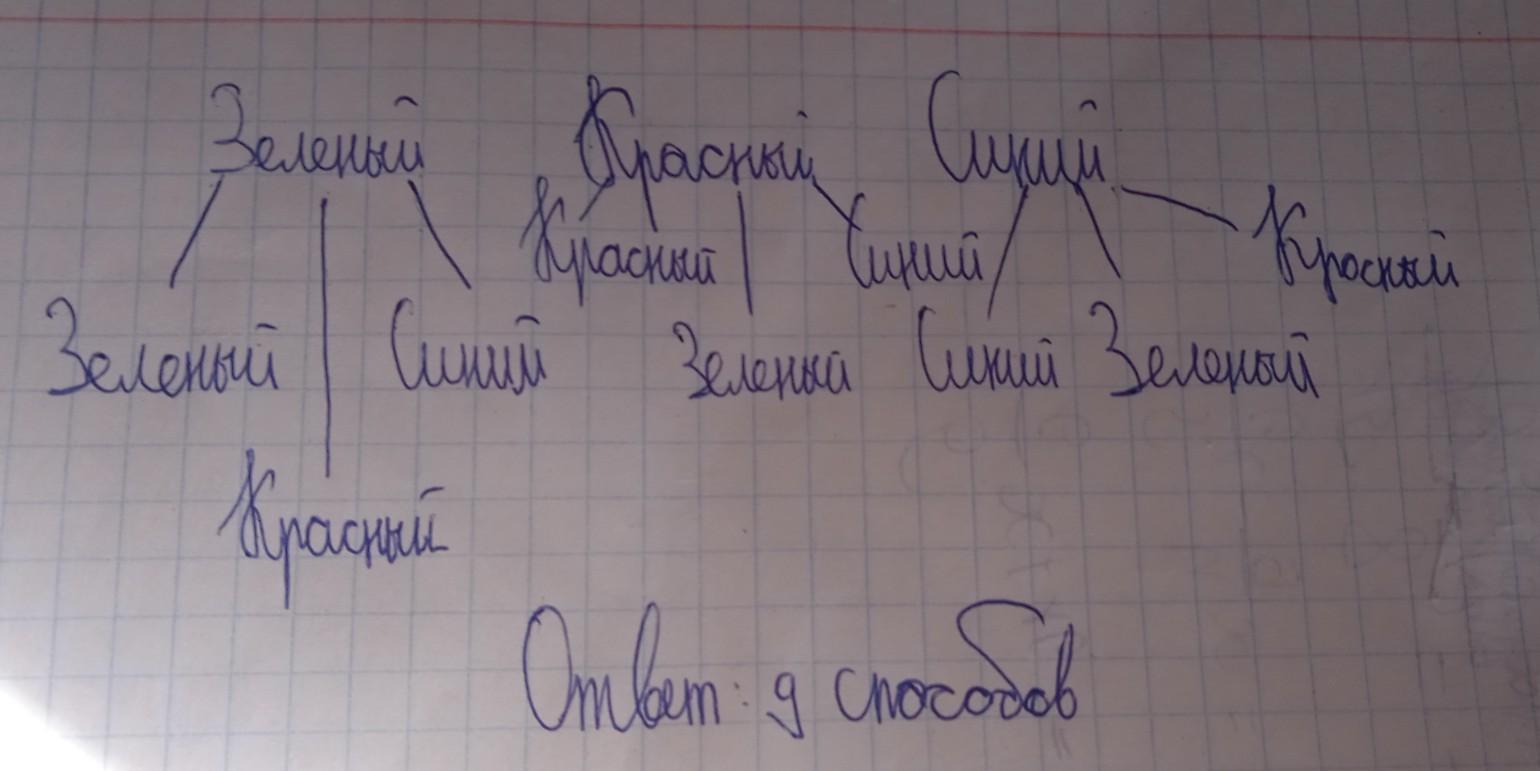 Зеленый Красный Синий
Красный Синий Красный
Зеленый Синий Зеленый Синий Зеленый
Красный
Ответ: 9 способов